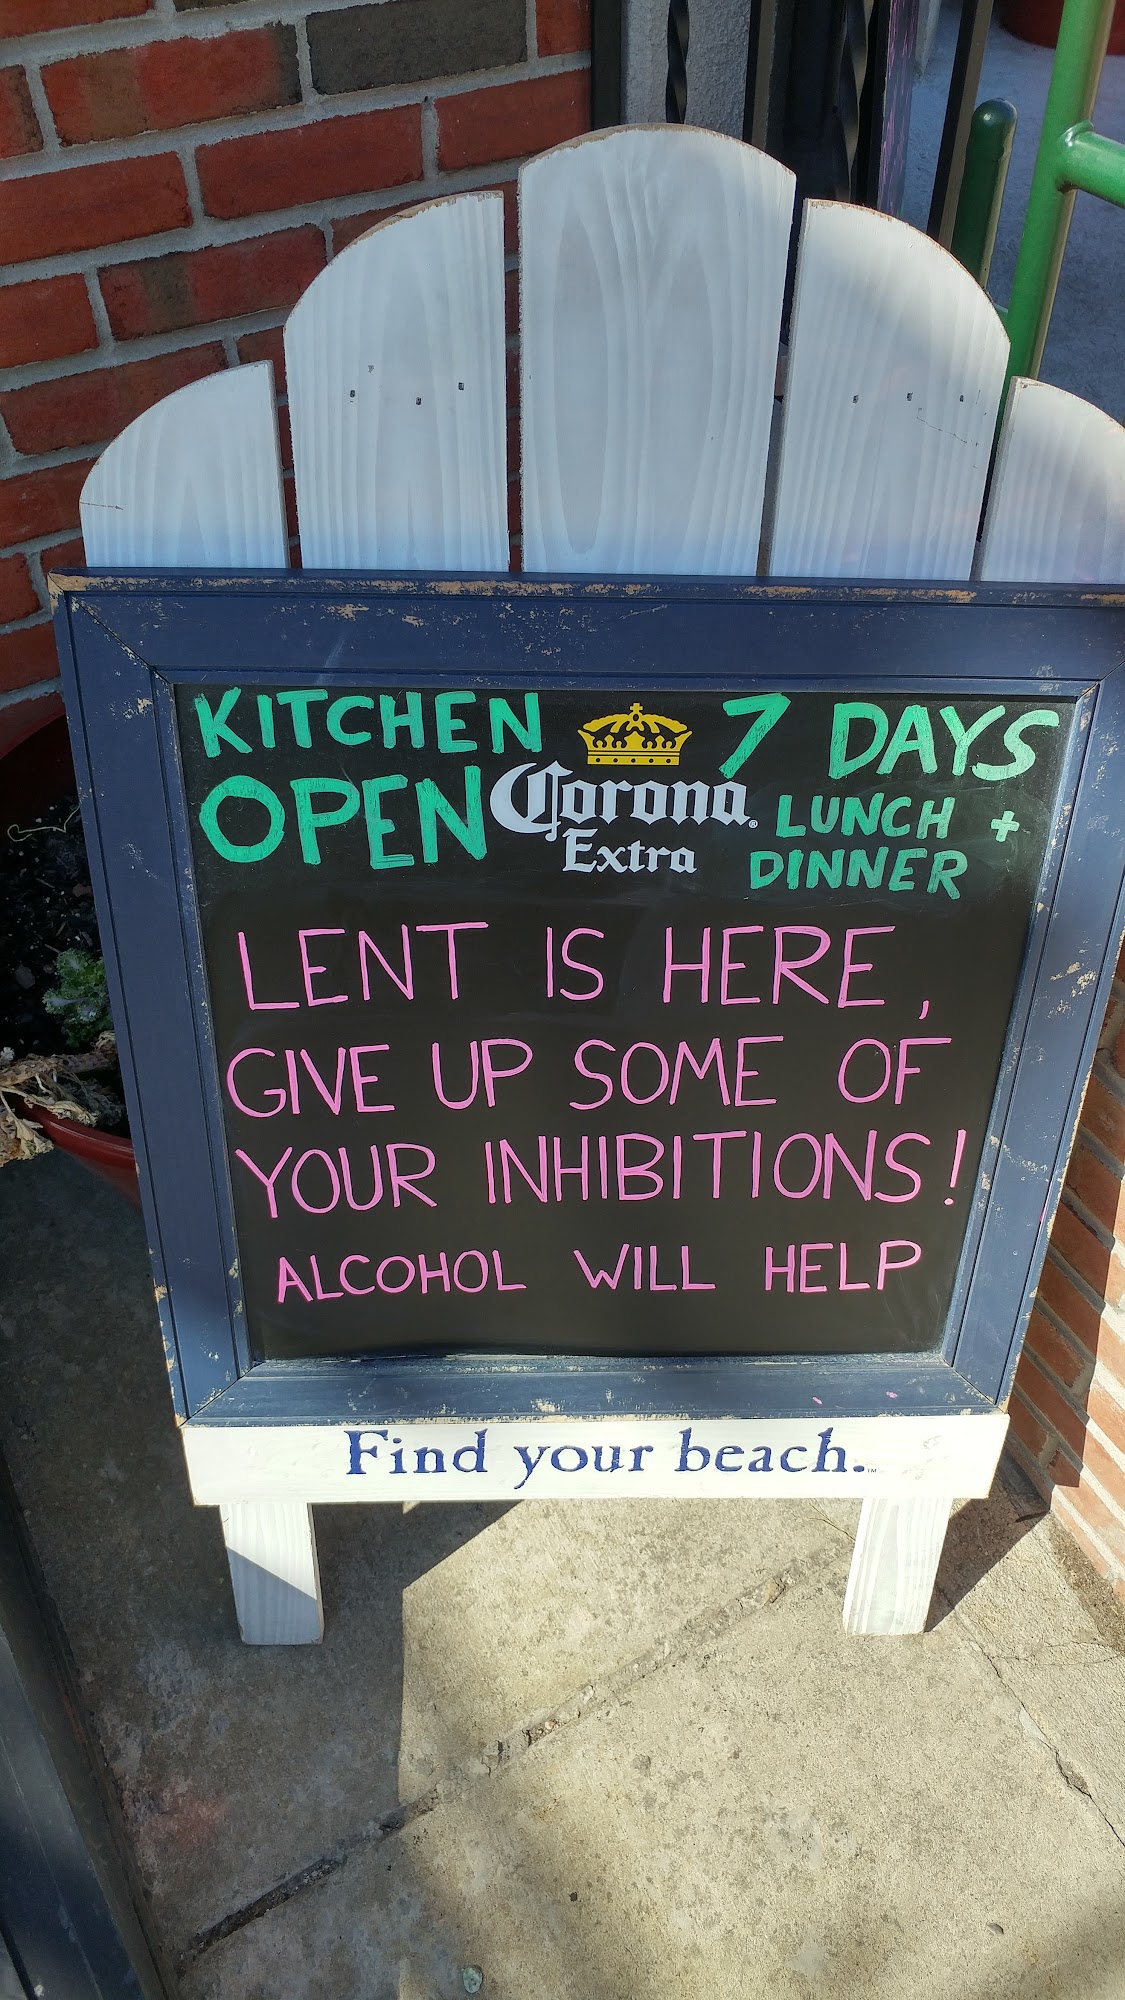 KITCHEN
OPEN
Corona
Extra
7 DAYS
LUNCH +
DINNER
LENT IS HERE,
GIVE UP SOME OF
YOUR INHIBITIONS!
ALCOHOL WILL HELP
Find your beach.™